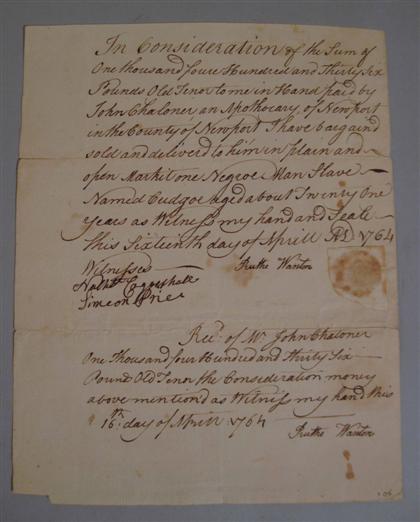 In Consideration of the Sum of
One thousand foure Hundred and Thirty Six
Pounds Old Tenor to me in Hand paid by
John Chaloner, an Apothocary, of Newport
in the County of Newport I have bargaind
sold and deliverd to him in plain and
open Markit one Negroe Man Slave
Named Cudgoe aged about Twenty One
Years as Witness my hand and Seale
this Sixteenth day of Aprill AD 1764
Witnesses Ruthe Wanton
Nathl Coggeshall
Simeon Price
Recd. of Mr John Chaloner
One Thousand four Hundred and thirty Six
Pound Old Tenor the Consideration money
above mention'd as Witness my hand this
16th. day of Aprill 1764
Ruthe Wanton